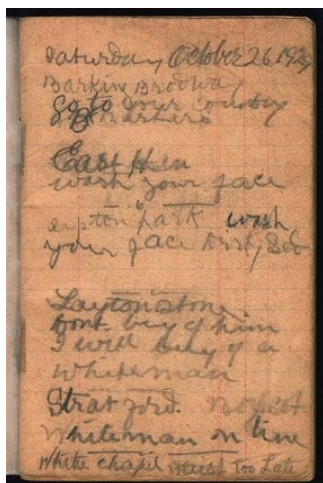 Saturday October 26 1929
Barkin Brodway
Go to your country
Barkers
East Hen
wash your face
upton park wash
your face Dirty
Laytonstone
Dont buy of him
I will buy of a
whiteman
Stratford. Boycot
Whiteman on line
White chapel waist Too Late